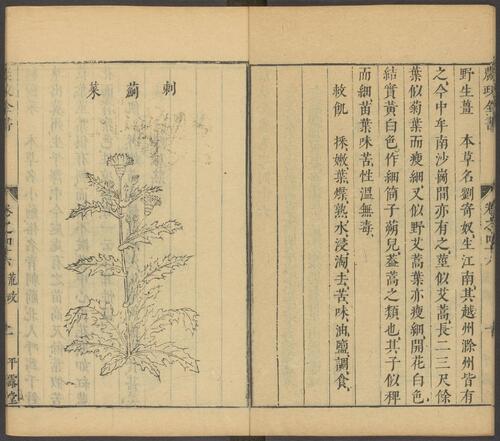 農政全書
野生薑 本草名劉寄奴生江南其越州滁州皆有
之今中牟南沙崗間亦有之莖似艾蒿長二三尺餘
葉似菊葉而瘦細又似野艾蒿葉亦瘦細開花白色
結實黃白色作細筒子蒴兒蓋蒿之類也其子似稗
而細苗葉味苦性溫無毒
救飢 採嫩葉煠熟水浸淘去苦味油鹽調食
刺薊菜
農政全書
卷之四十六 荒政 平露堂